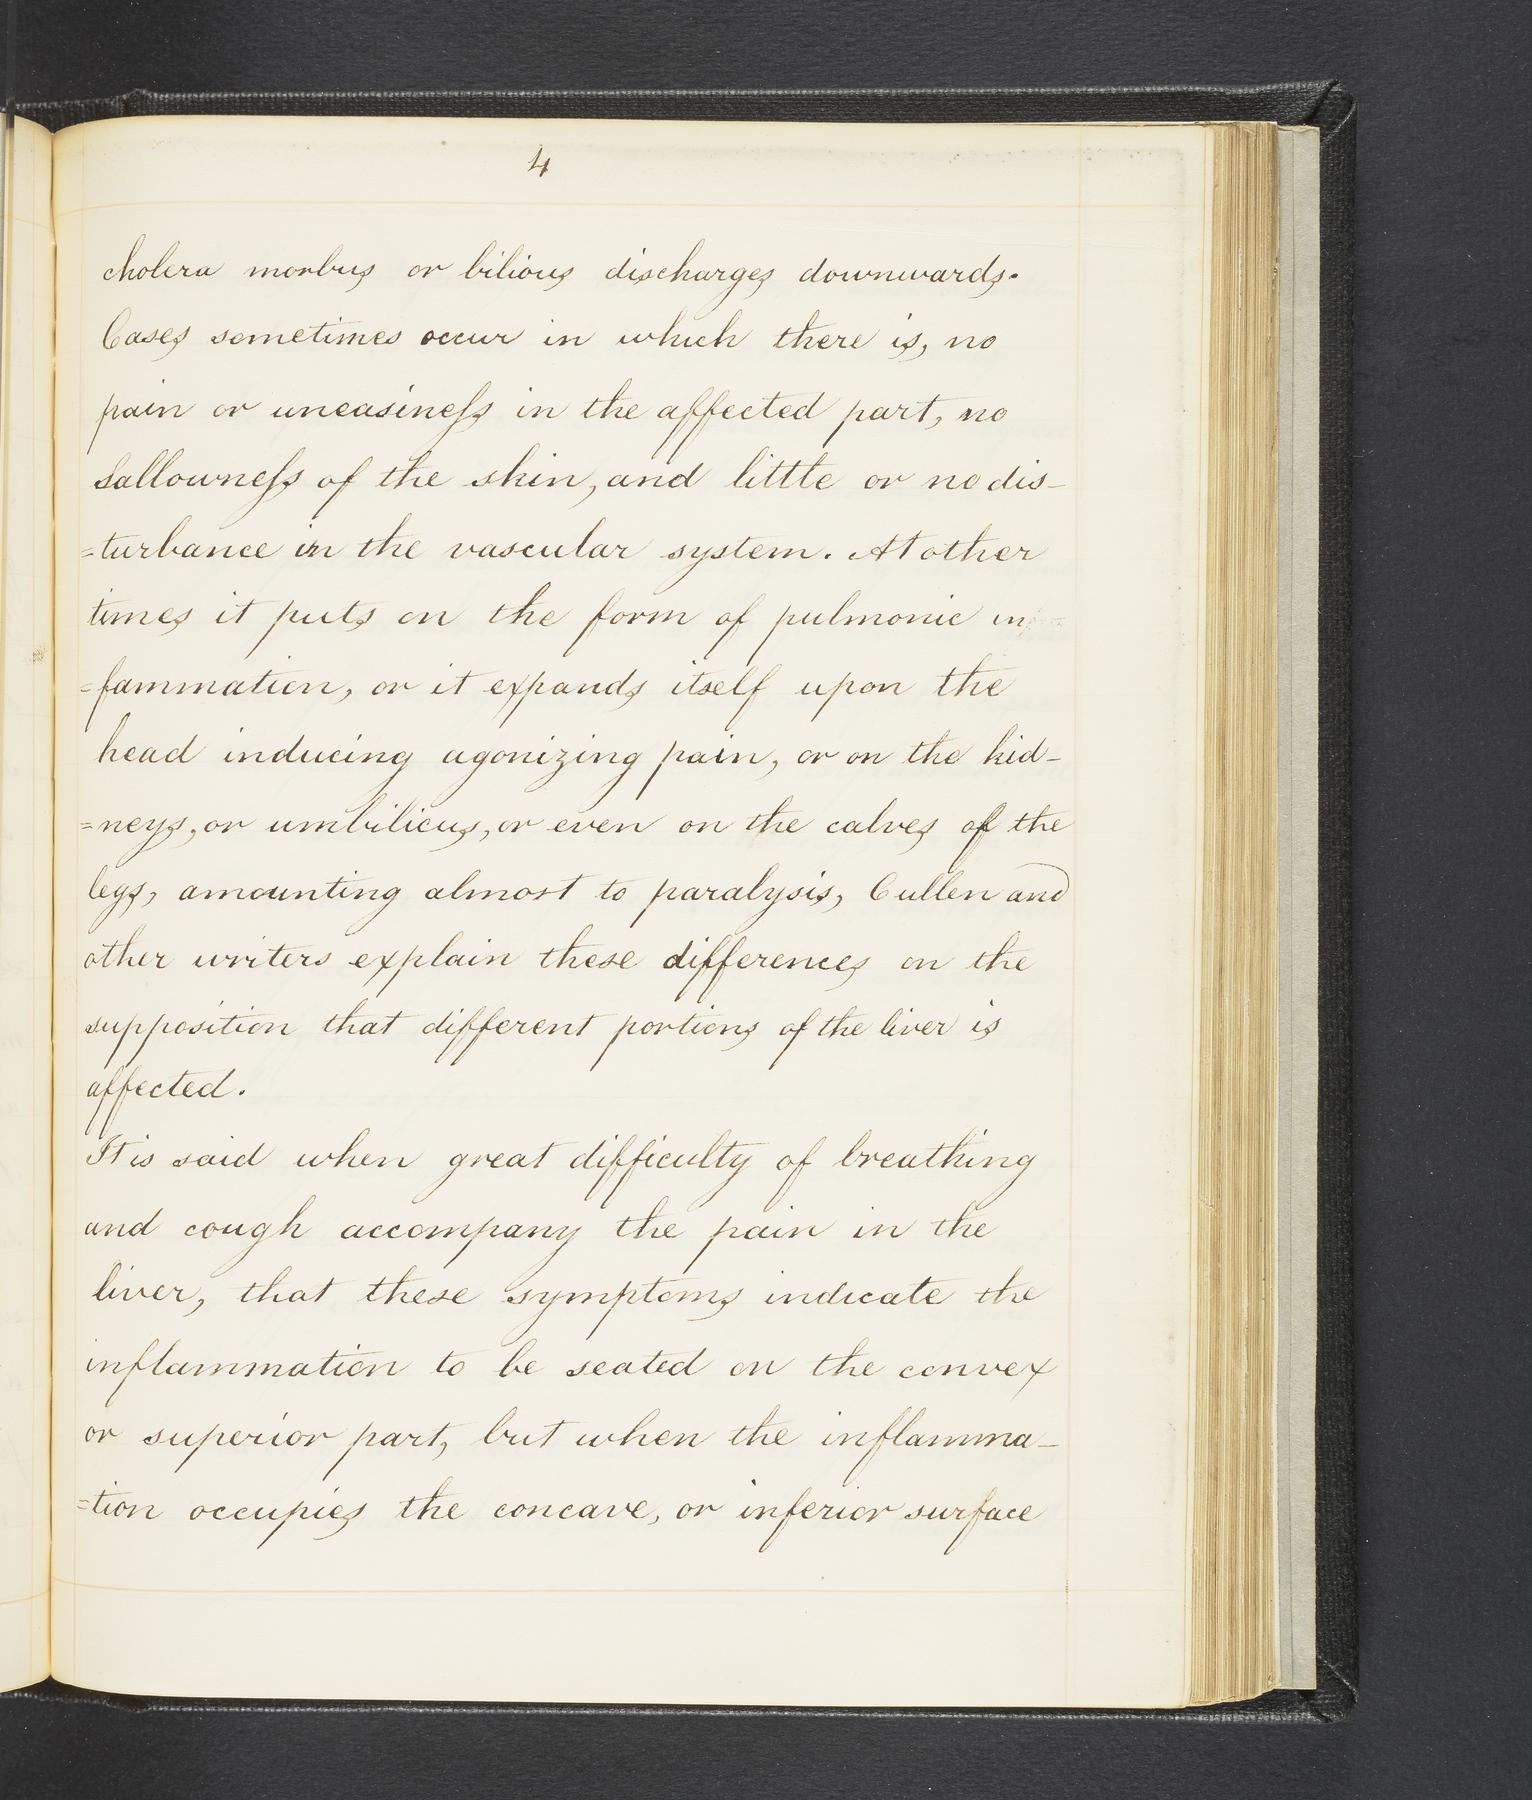 4
cholera morbus or bilious discharges downwards.
Cases sometimes occur in which there is, no
pain or uneasiness in the affected part, no
Sallowness of the skin, and little or no dis-
=turbance in the vascular system. At other
times it puts on the form of pulmonic in
=fammation, or it expands itself upon the
head inducing agonizing pain, or on the kid-
=neys, or umbilicus, or even on the calves of the
legs, amounting almost to paralysis, Cullen and
other writers explain these differences on the
supposition that different portions of the liver is
affected.
It is said when great difficulty of breathing
and cough accompany the pain in the
liver, that these symptoms indicate the
inflammation to be seated on the convex
or superior part, but when the inflamma-
=tion occupies the concave, or inferior surface